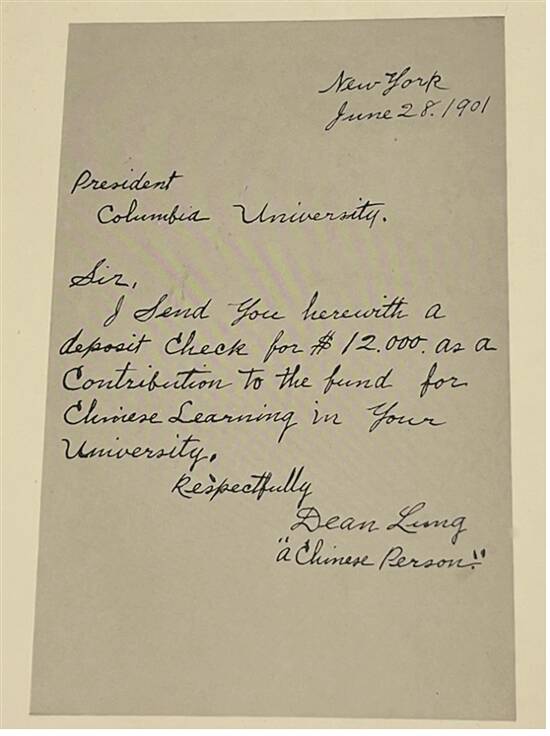 New York
June 28. 1901
President
Columbia University.
Sir,
I Send You herewith a
deposit Check for $ 12.000. as a
Contribution to the fund for
Chinese Learning in Your
University.
Respectfully
Dean Lung
"a Chinese Person."